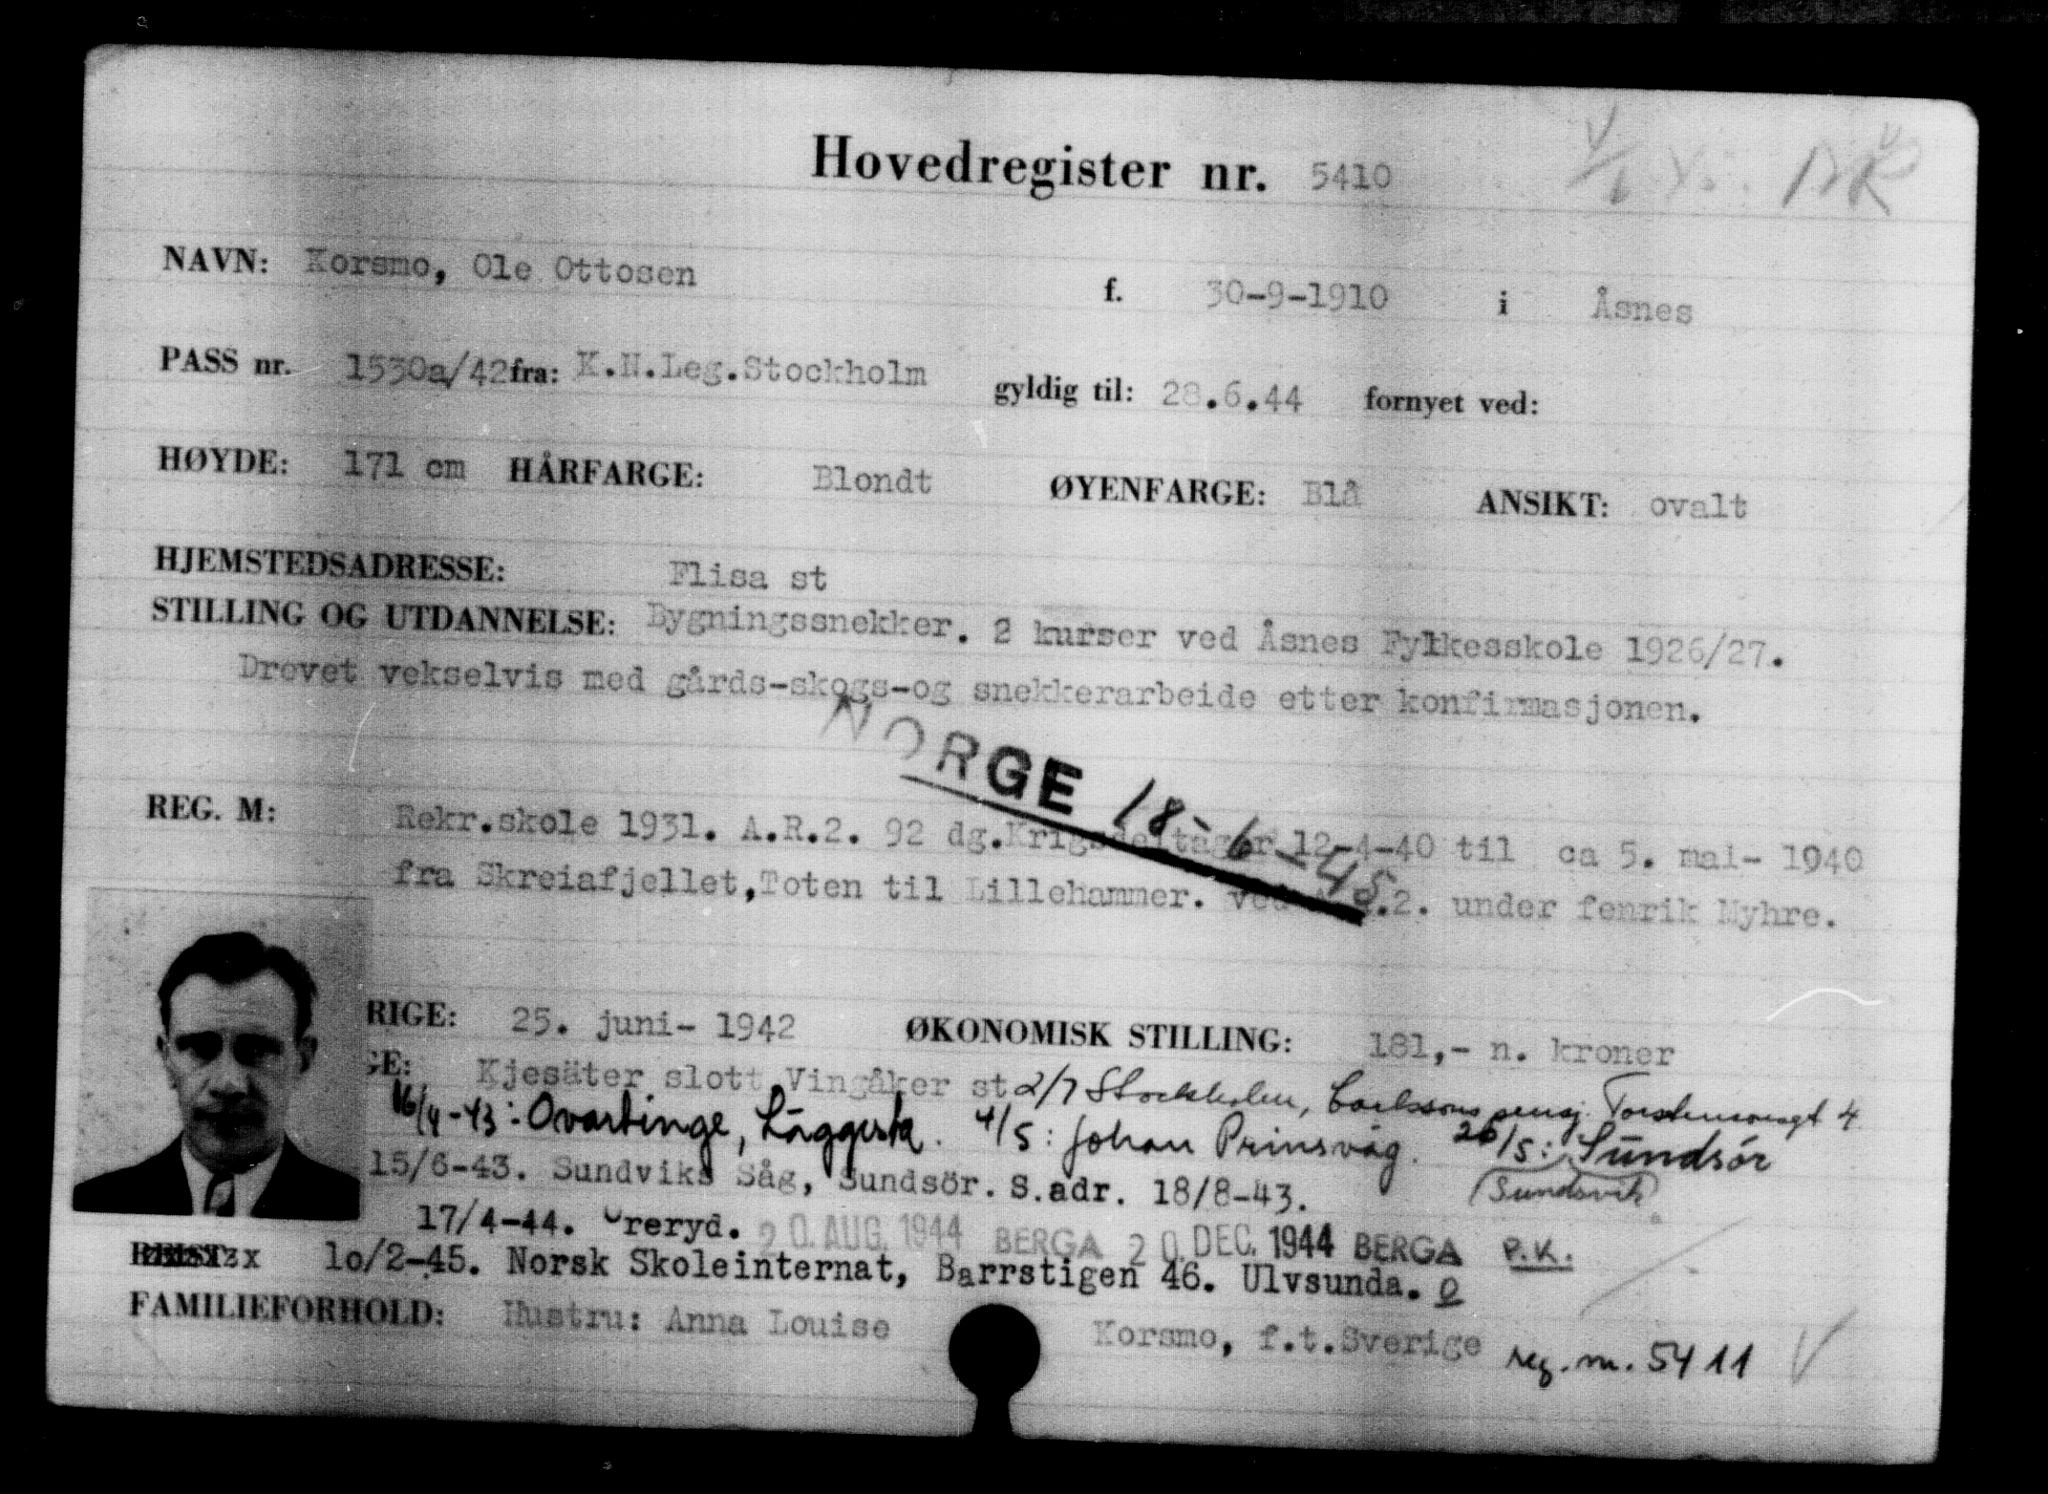 Hovedregister nr. 5410
NAVN: Korsmo, Ole Ottosen f. 30-9-1910 i Åsnes
PASS nr. 1530a/42 fra: K.N.Leg.Stockholm gyldig til: 28.6.44 fornyet ved:
HØYDE: 171 cm HÅRFARGE: Blondt ØYENFARGE: Blå ANSIKT: ovalt
HJEMSTEDSADRESSE: Flisa st
STILLING OG UTDANNELSE: Bygningssnekker. 2 kurser ved Åsnes Fylkesskole 1926/27.
Drevet vekselvis med gårds-skogs-og snekkerarbeide etter konfirmasjonen.
NORGE 18-6-45
REG. M: Rekr.skole 1931. A.R.2. 92 dg.Krigsdeltager 12-4-40 til ca 5. mai- 1940
fra Skreiafjellet,Toten til Lillehammer. ved A.R.2. under fenrik Myhre.
RIGE: 25. juni- 1942 ØKONOMISK STILLING: 181,- n. kroner
GE: Kjesäter slott,Vingåker st 2/7 Stockholm, Carlssons pensj. Torstensonsgt 4
16/4-43: Ovartinge, Läggesta. 4/5: Johan Prinsvåg. 26/5: Sundsör
15/6-43. Sundviks Såg, Sundsör. S.adr. 18/8-43. (Sundsvik)
17/4-44. Oreryd. 20. AUG. 1944 BERGA 20. DEC. 1944 BERGA P.K.
REIST: lo/2-45. Norsk Skoleinternat, Barrstigen 46. Ulvsunda. o
FAMILIEFORHOLD: Hustru: Anna Louise Korsmo, f.t.Sverige reg. nr. 5411 V